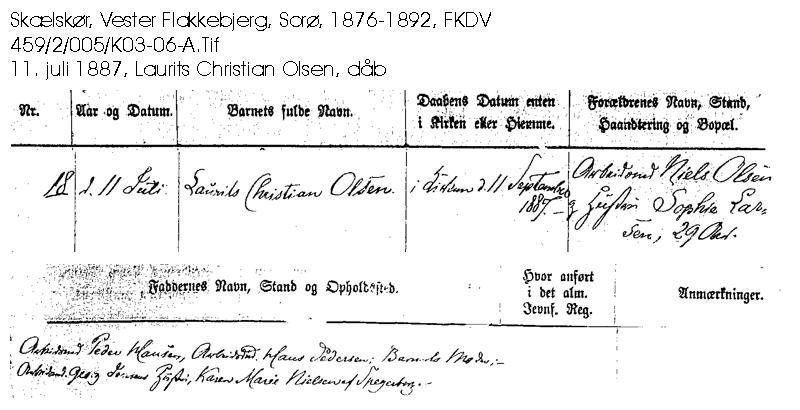 Skælskør, Vester Flakkebjerg, Sorø, 1876-1892, FKDV
459/2/005/K03-06-A.Tif
11. juli 1887, Laurits Christian Olsen, dåb
Nr.
Aar og Datum.
Barnets fulde Navn.
Daabens Datum enten
i Kirken eller Hjemme.
Forældrenes Navn, Stand,
Haandtering og Bopæl.
18
d. 11 Juli
Laurits Christian Olsen.
i Kirken d. 11 September
1887. –
Arbeidsmd Niels Olsen
og Hustru Sophie Lar-
sen, 29 Aar.
Faddernes Navn, Stand og Opholdssted.
Hvor anført
i det alm.
Jevnf. Reg.
Anmærkninger.
Arbeidsmd Peder Hansen, Arbeidsmd. Hans Pedersen; Barnets Moder;–
Arbeidsmd. Georg Hustru, Karen Marie Nielsen af